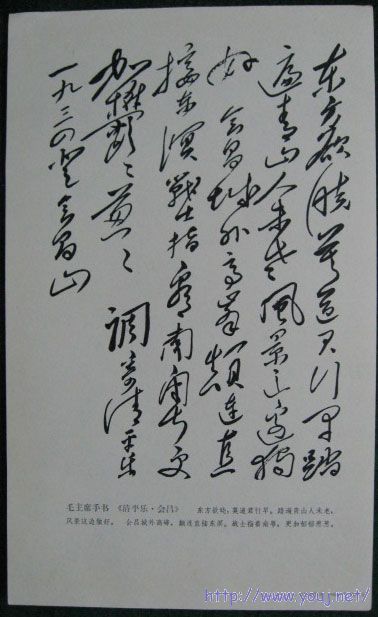 东方欲晓莫道君行早踏
遍青山人未老風景这边独
好 会昌城外高峯颠连直
接东溟戰士指看南粤更
加鬱〻葱〻 調寄清平乐
一九三四 登会昌山
毛主席手书 《清平乐·会昌》 东方欲晓，莫道君行早。踏遍青山人未老，
风景这边独好。 会昌城外高峰，颠连直接东溟。战士指看南粤，更加郁郁葱葱。
http://www.youj.net/